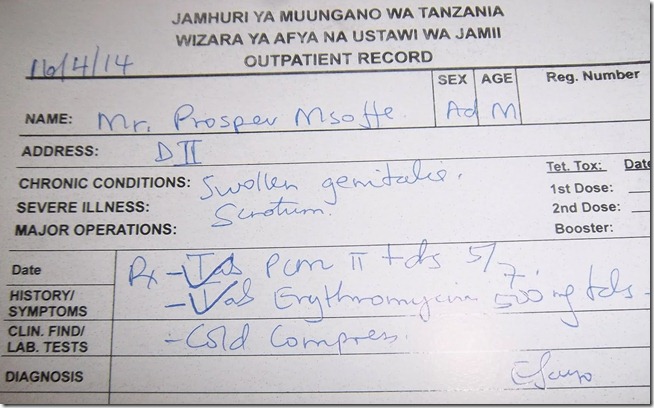 JAMHURI YA MUUNGANO WA TANZANIA
WIZARA YA AFYA NA USTAWI WA JAMII
OUTPATIENT RECORD
16/4/14
SEX AGE Reg. Number
NAME: Mr. Prosper Msoffe Ad M
ADDRESS: D II
CHRONIC CONDITIONS: Swollen genitalie.
SEVERE ILLNESS: Scrotum.
MAJOR OPERATIONS:
Tet. Tox: Date
1st Dose:
2nd Dose:
Booster:
Date Rx - Tab PCM II tds 5/7.
HISTORY/ SYMPTOMS - Tab Erythromycin 500 mg tds -
CLIN. FIND/ LAB. TESTS - Cold Compress.
DIAGNOSIS